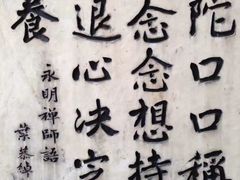 陀口口稱
念念想持
退心决定
養
永明禪師語
葉恭綽